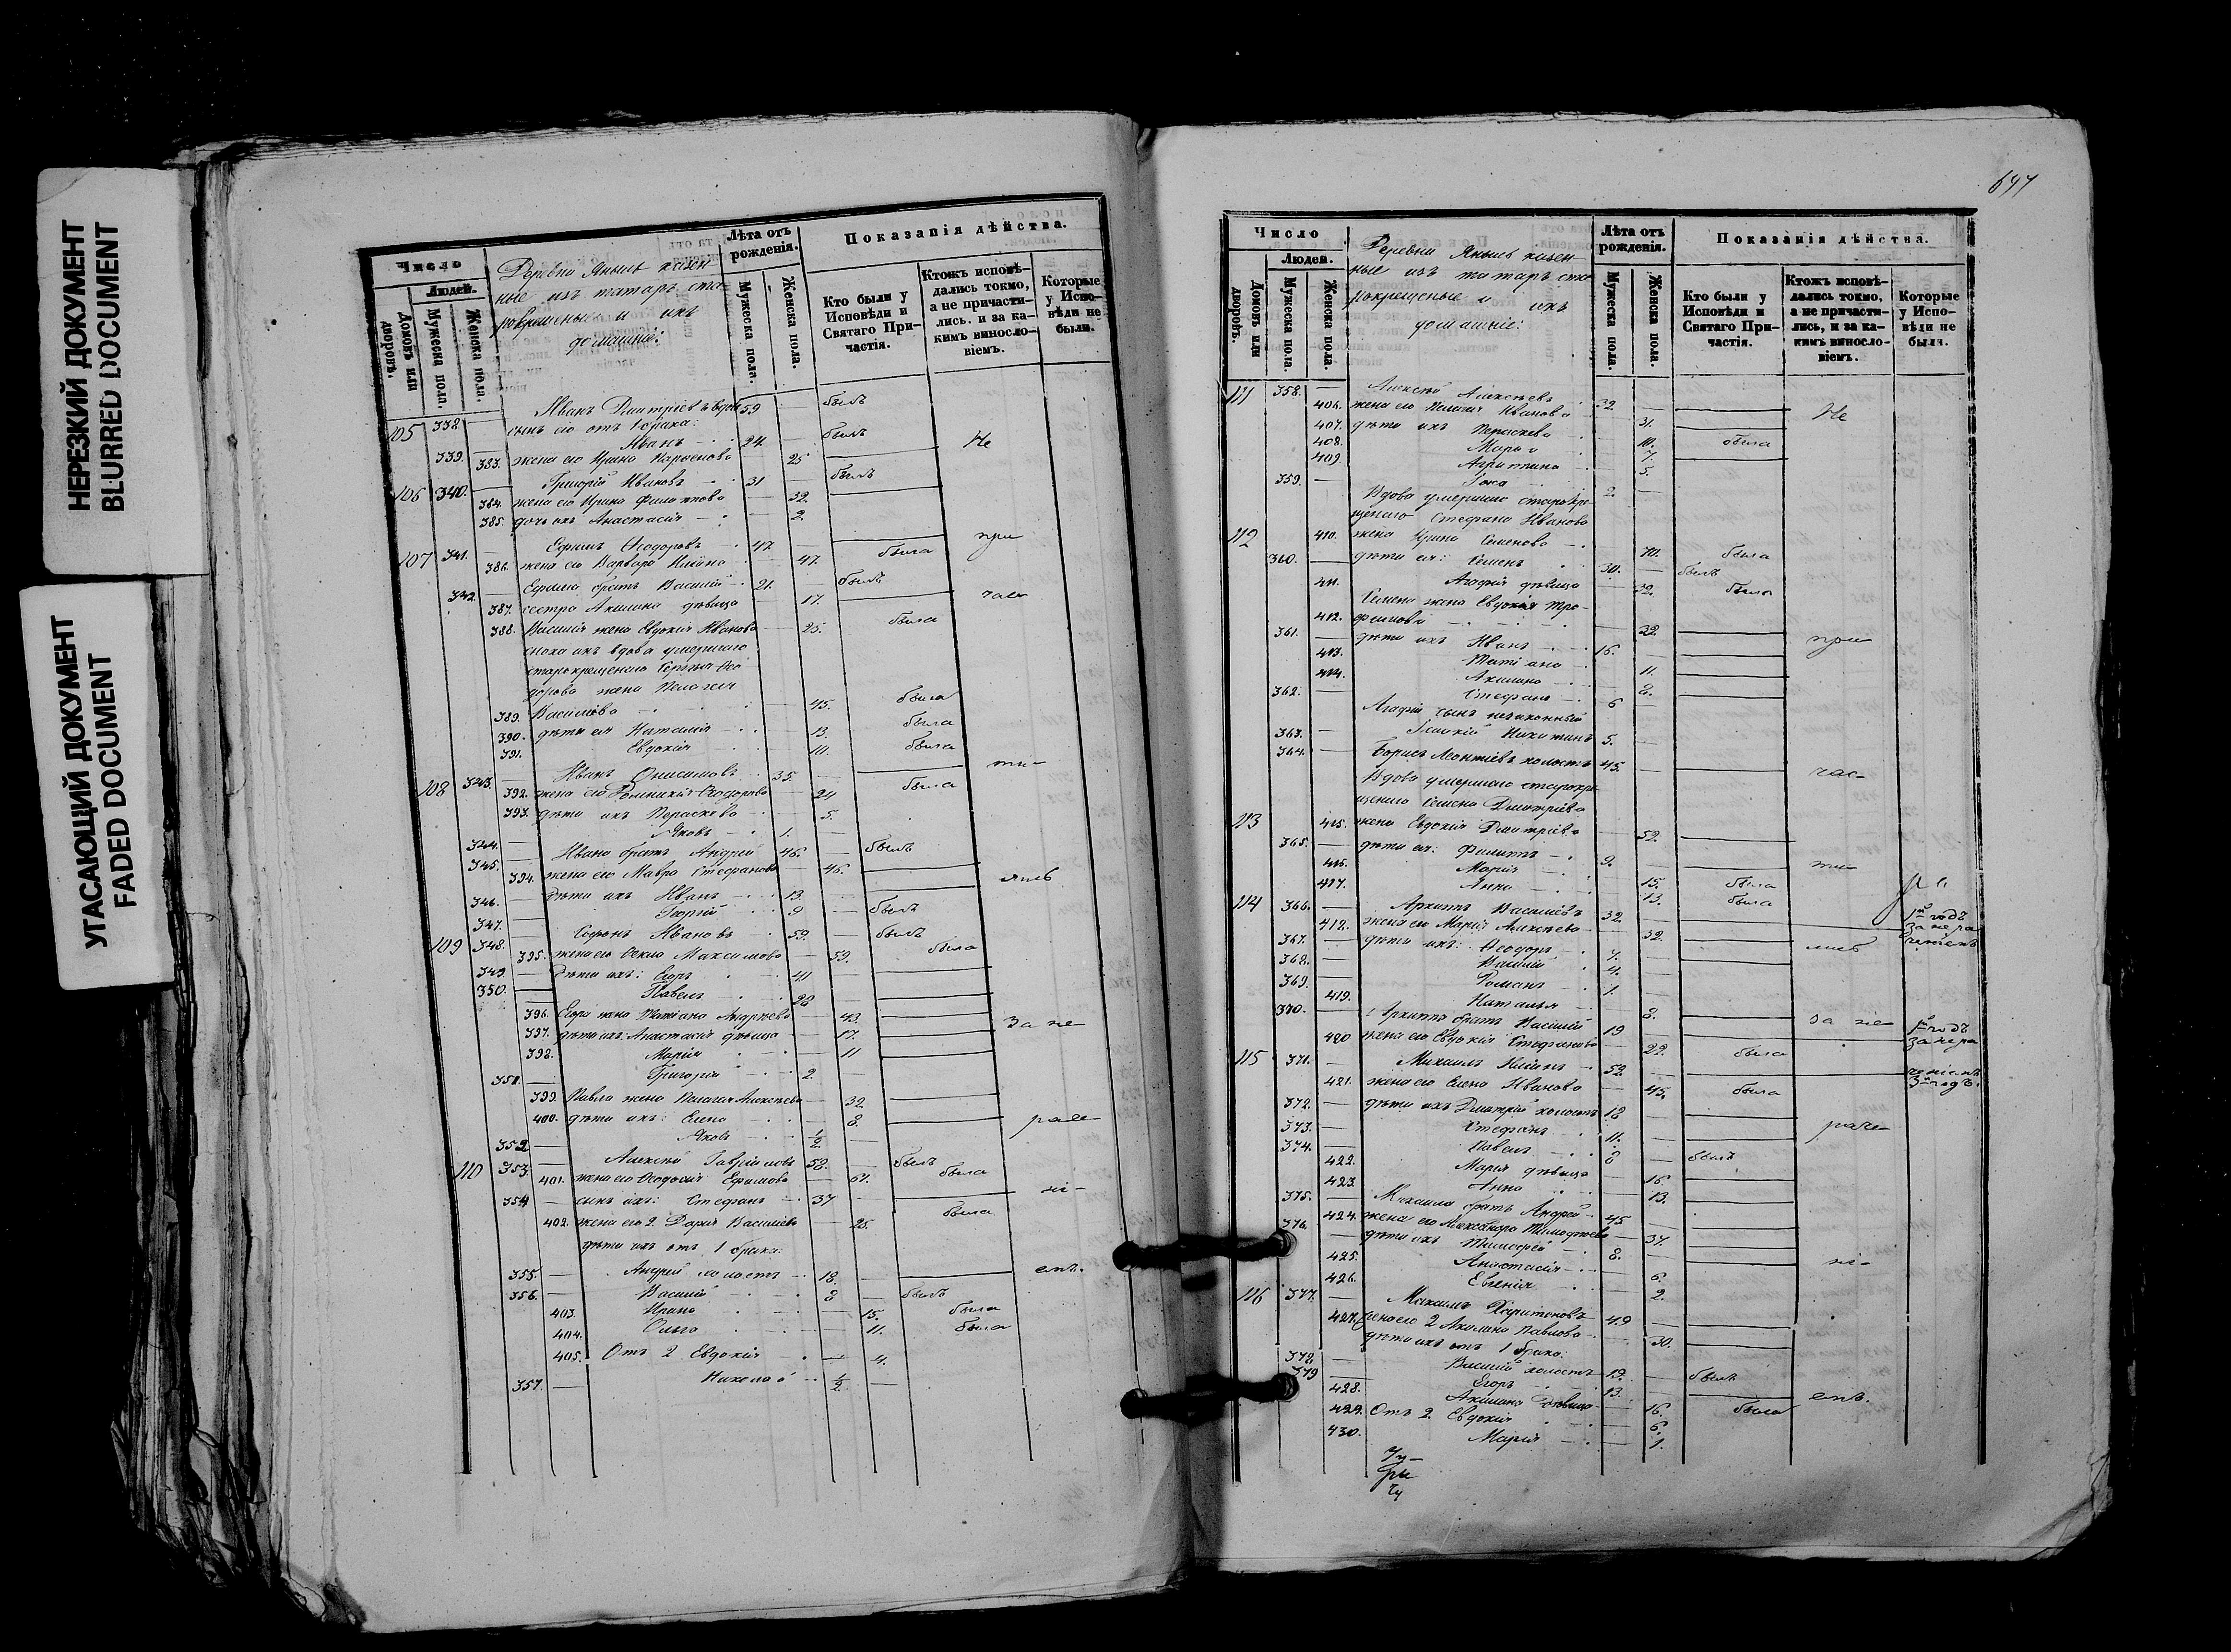 НЕРЕЗКИЙ ДОКУМЕНТ
BLURRED DOCUMENT
УГАСАЮЩИЙ ДОКУМЕНТ
FADED DOCUMENT
Число
Людей.
Домовъ или дворовъ.
Мужеска пола.
Женска пола.
Деревни Янылъ казен
ные изъ татаръ ста-
рокрещеные и ихъ
домашніе:
Лѣта отъ рожденія.
Мужеска пола.
Женска пола.
Показанія дѣйства.
Кто были у Исповѣди и Святаго При-частія.
Ктожъ исповѣ-дались токмо, а не причасти-лись. и за ка-кимъ винослo-віемъ.
Которые у Испо-вѣди не были.
105 338. Иванъ Дмитріевъ вдов 59 былъ
сынъ его отъ 1 брака:
339. Иванъ 24. былъ Не
383. жена его Ирина 25
106 340. Григорій Ивановъ 31 былъ
384. жена его Ирина Филиппова 32.
385. дочь ихъ Анастасія 2.
107 341. Ефимъ Ѳеодоровъ 47 при
386. жена его Варвара 47. была
342. Ефима братъ Василій 21. былъ
387. сестра Акилина дѣвица 17. час
388. Василія жена Евдокія Иванова 25. была
сноха ихъ вдова умершаго
старокрещенаго Сергѣя Ѳео
дорова жена Пелагея
389. Васильева 45. была
390. дѣти ея Наталія 13. была
391. Евдокія 10. была
108 343. Иванъ Онисимовъ 35. ти-
392. жена его Домникія Ѳеодорова 24 была
393. дѣти ихъ Параскева 5.
344. Яковъ 1.
345. Ивана братъ Андрей 46. былъ
394. жена его Мавра Стефанова 46. лись
346. дѣти ихъ Иванъ 13.
347. Георгій 9 былъ
109 348. Софонъ Ивановъ 59. былъ
395. жена его Ѳекла Максимова 59. была
349. дѣти ихъ: Егоръ 41
350. Павелъ 28
396. Егора жена Татіана Андреева 43.
397. дѣти ихъ: Анастасія дѣвица 17. за не
398. Марія 11
351. Григорій 2.
399. Павла жена Пелагея Алексѣева 32.
400. дѣти ихъ: Елена 8. раче
352 Яковъ 1/2
110 353. Алексѣй Гавріиловъ 58. былъ
401. жена его Ѳеодосія Ефимова 61. была
354 сынъ ихъ: Стефанъ 37 ні-
402. жена его 2. Дарья Васильева 25. была
дѣти ихъ отъ 1 брака:
355. Андрей холостъ 18. емъ.
356. Василій 8 былъ
403. Ирина 15. была
404. Ольга 11. была
405. Отъ 2 Евдокія 4.
357. Николай 1/2
647
Число
Людей.
Домовъ или дворовъ.
Мужеска пола.
Женска пола.
Деревни Янылъ казен-
ные изъ татаръ ста
рокрещеные и ихъ
домашніе:
Лѣта отъ рожденія.
Мужеска пола.
Женска пола.
Показанія дѣйства.
Кто были у Исповѣди и Святаго При-частія.
Ктожъ исповѣ-дались токмо, а не причасти-лись, и за ка-кимъ винослo-віемъ.
Которые у Испо-вѣди не были.
111 358. Алексѣй Алексѣевъ 32. Не
406. жена его Пелагея Иванова 31.
407. дѣти ихъ Параскева 10. была
408. Марья 7.
409. Агрипина 5.
359. 2.
Вдова умершаго старокре
щенаго Стефана Иванова
112 410. жена Ирина Семенова 70. была
360. дѣти ея: Семенъ 30. былъ
411. Агафія дѣвица 32. была
Семена жена Евдокія Тро-
412. фимова 32.
361. дѣти ихъ Иванъ 16. при
413. Татіана 11.
414. Акилина 8.
362. Стефанъ 6
Агафіи сынъ незаконный
363. Никитинъ 5.
364. Борисъ Леонтіевъ холостъ 45. час-
Вдова умершаго старокре
щенаго Семена Дмитріева
113 415. жена Евдокія Дмитріева 52.
365. дѣти ея: Филиппъ 9. ти-
416. Марія 15. была
417. Анна 13. была
114 366. Архиппъ Васильевъ 32. 1й годъ за нера
418. жена его Марія Алексѣева 32. ченіемъ
367. дѣти ихъ: Ѳеодоръ 7. лись
368. Василій 4.
369. Романъ 1.
419. Наталья 8.
370. Архиппа братъ Василій 19 за не 1й годъ
420 жена его Евдокія Стефанова 22. была за нера
115 371. Михаилъ 52. ченіемъ
421. жена его Елена Иванова 45. была 3й годъ.
372. дѣти ихъ Дмитрій холостъ 18
373. Стефанъ 11. раче-
374. Павелъ 8 былъ
422. Марія дѣвица 16.
423. Анна 13.
375. Михаила братъ Андрей 45
424. жена его Александра Тимофеева 37.
376. дѣти ихъ Тимофей 8.
425. Анастасія 6. ні-
426. Евгенія 2.
116 377. Максимъ Харитоновъ 49
427. жена его 2 Акилина Павлова 30.
дѣти ихъ отъ 1 брака:
378. Василій холостъ 19. былъ
379 Егоръ 13.
428. Акилина дѣвица 16. была емъ.
429. Отъ 2. Евдокія 6.
430. Марія 1.